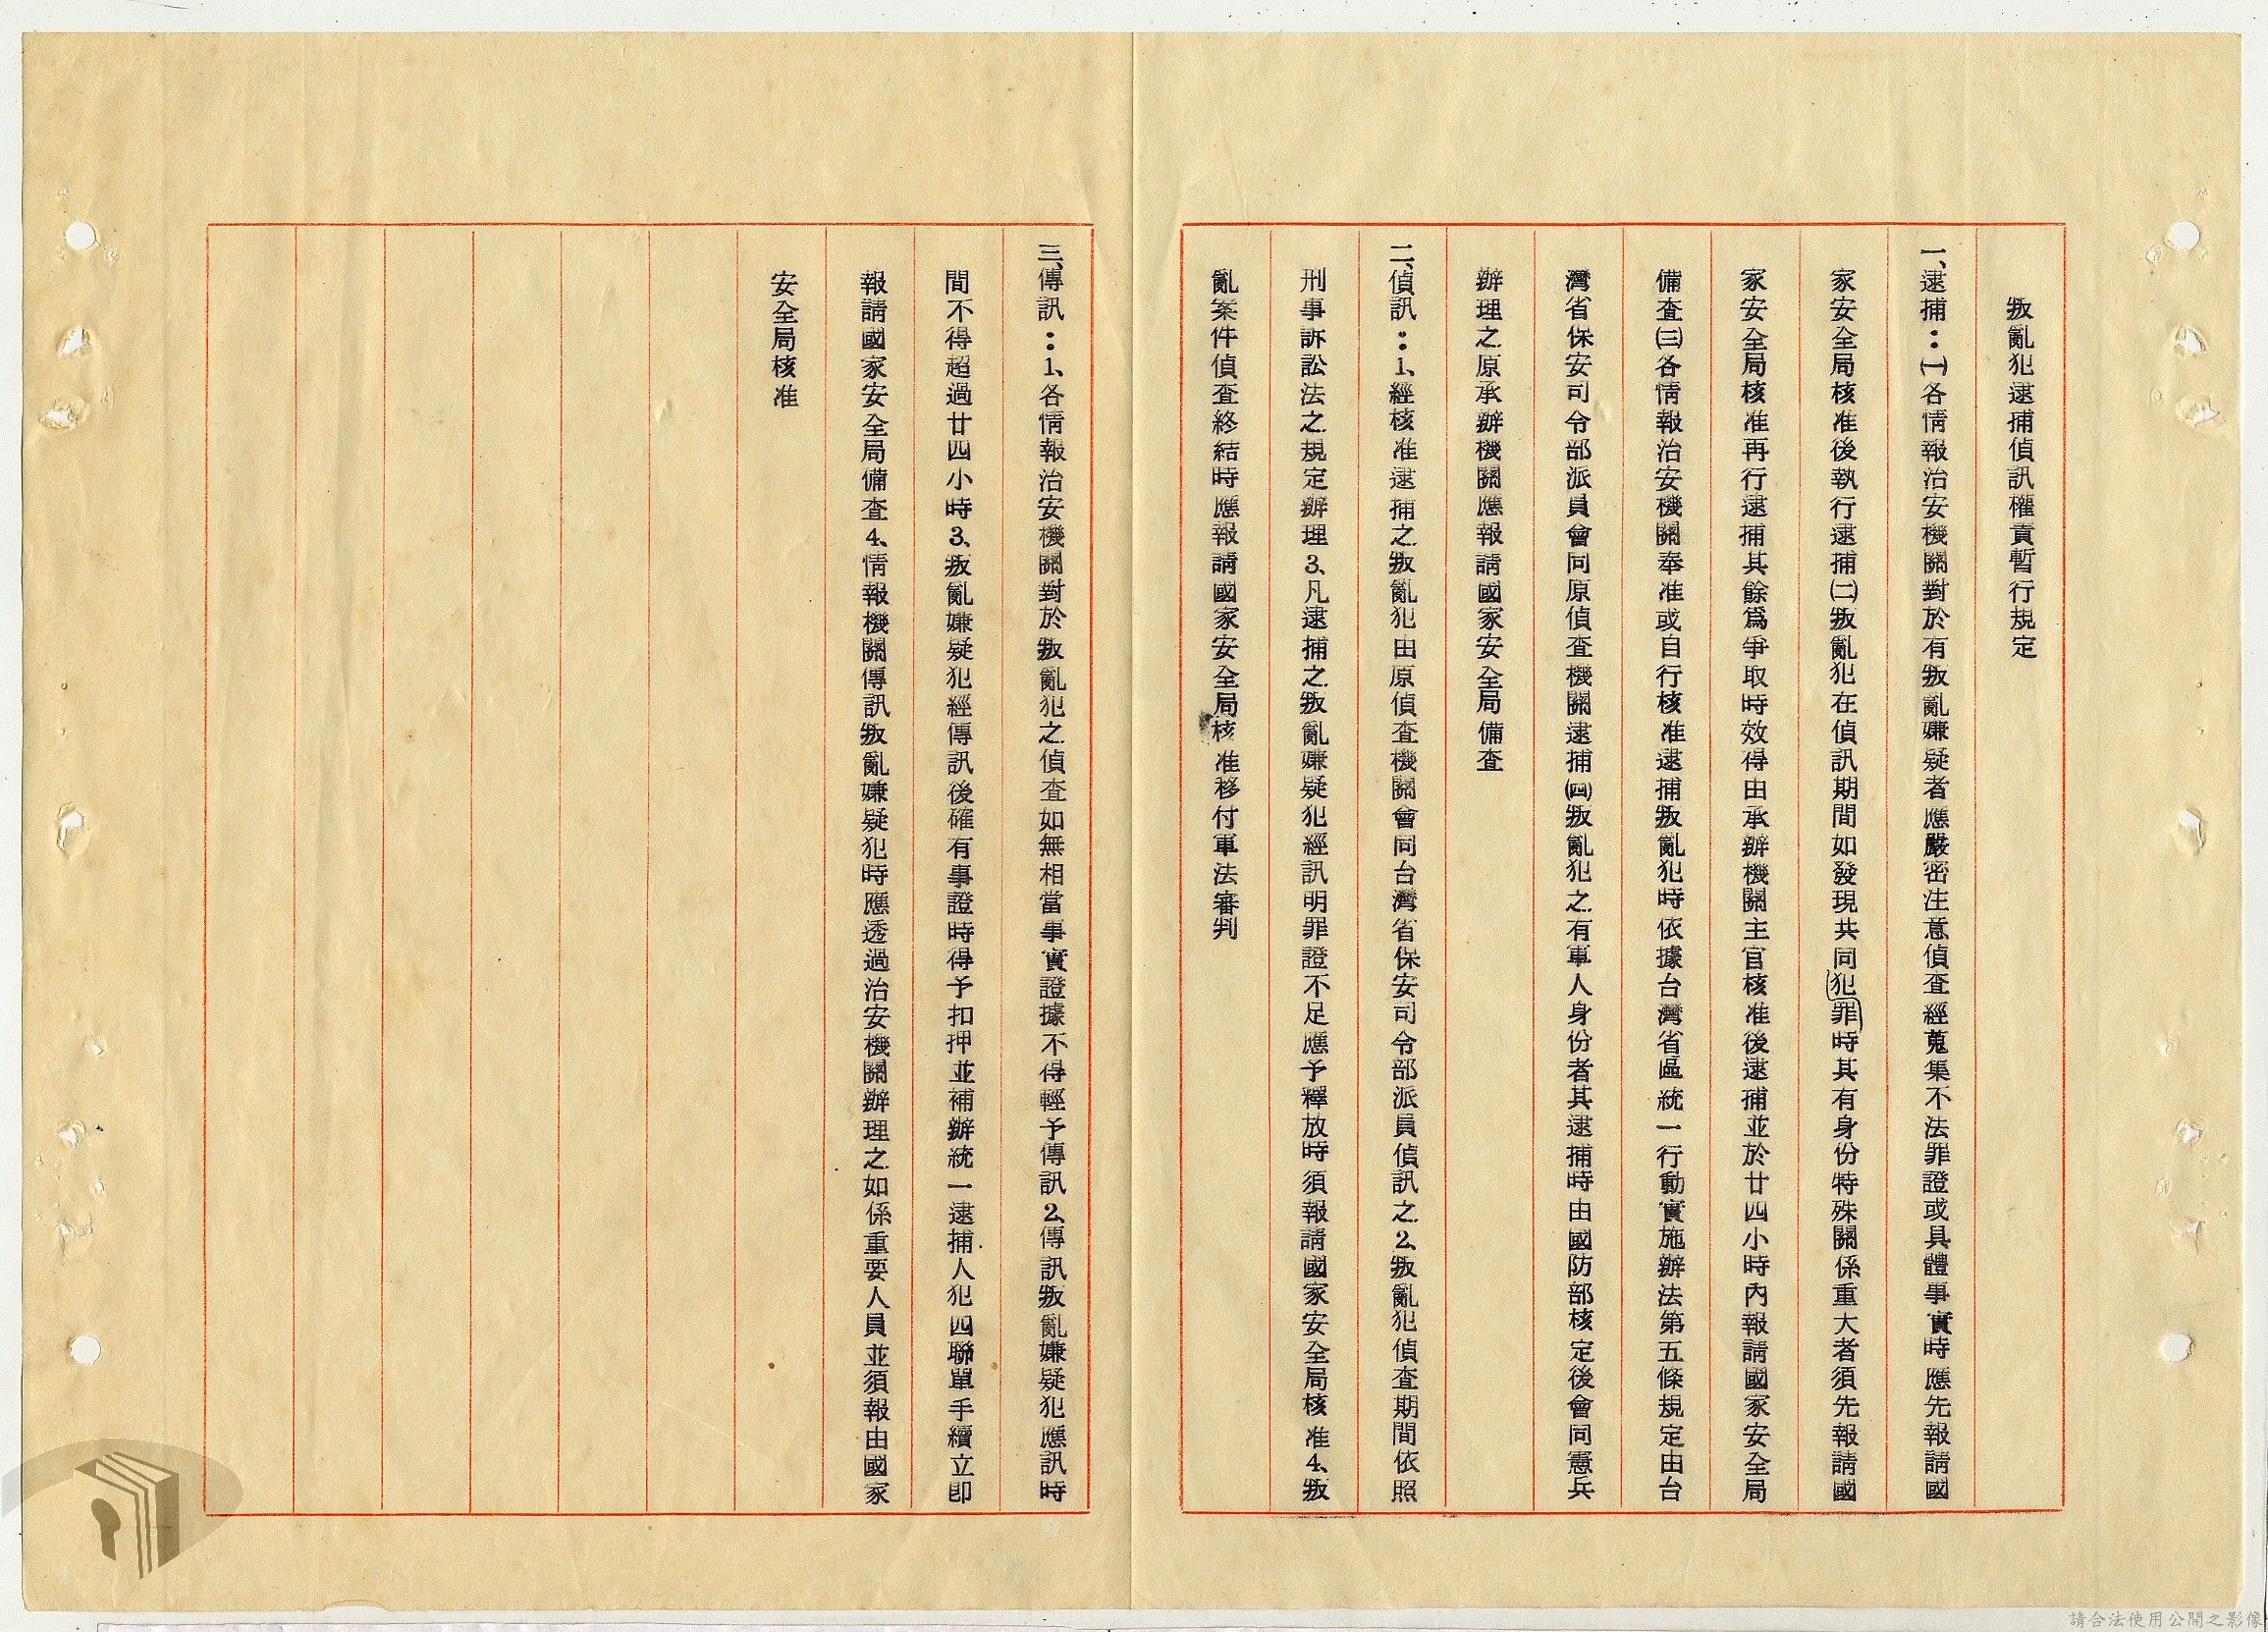 叛亂犯逮捕偵訊權責暫行規定
一、逮捕：㈠各情報治安機關對於有叛亂嫌疑者應嚴密注意偵查經蒐集不法罪證或具體事實時應先報請國
家安全局核准後執行逮捕㈡叛亂犯在偵訊期間如發現共同犯罪時其有身份特殊關係重大者須先報請國
家安全局核准再行逮捕其餘爲爭取時效得由承辦機關主官核准後逮捕並於廿四小時內報請國家安全局
備查㈢各情報治安機關奉准或自行核准逮捕叛亂犯時依據台灣省區統一行動實施辦法第五條規定由台
灣省保安司令部派員會同原偵查機關逮捕㈣叛亂犯之有軍人身份者其逮捕時由國防部核定後會同憲兵
辦理之原承辦機關應報請國家安全局備查
二、偵訊：1、經核准逮捕之叛亂犯由原偵查機關會同台灣省保安司令部派員偵訊之2、叛亂犯偵查期間依照
刑事訴訟法之規定辦理3、凡逮捕之叛亂嫌疑犯經訊明罪證不足應予釋放時須報請國家安全局核准4、叛
亂案件偵查終結時應報請國家安全局核准移付軍法審判
三、傳訊：1、各情報治安機關對於叛亂犯之偵查如無相當事實證據不得輕予傳訊2、傳訊叛亂嫌疑犯應訊時
間不得超過廿四小時3、叛亂嫌疑犯經傳訊後確有事證時得予扣押並補辦統一逮捕人犯四聯單手續立即
報請國家安全局備查4、情報機關傳訊叛亂嫌疑犯時應透過治安機關辦理之如係重要人員並須報由國家
安全局核准
請合法使用公開之影像